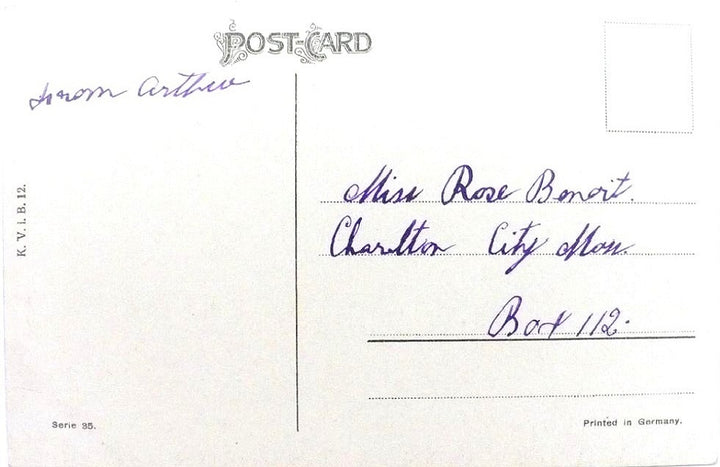 POST-CARD
from Arthur
Miss Rose Benoit.
Charlton City Mass.
Box 112.
K. V. i. B. 12.
Serie 35.
Printed in Germany.